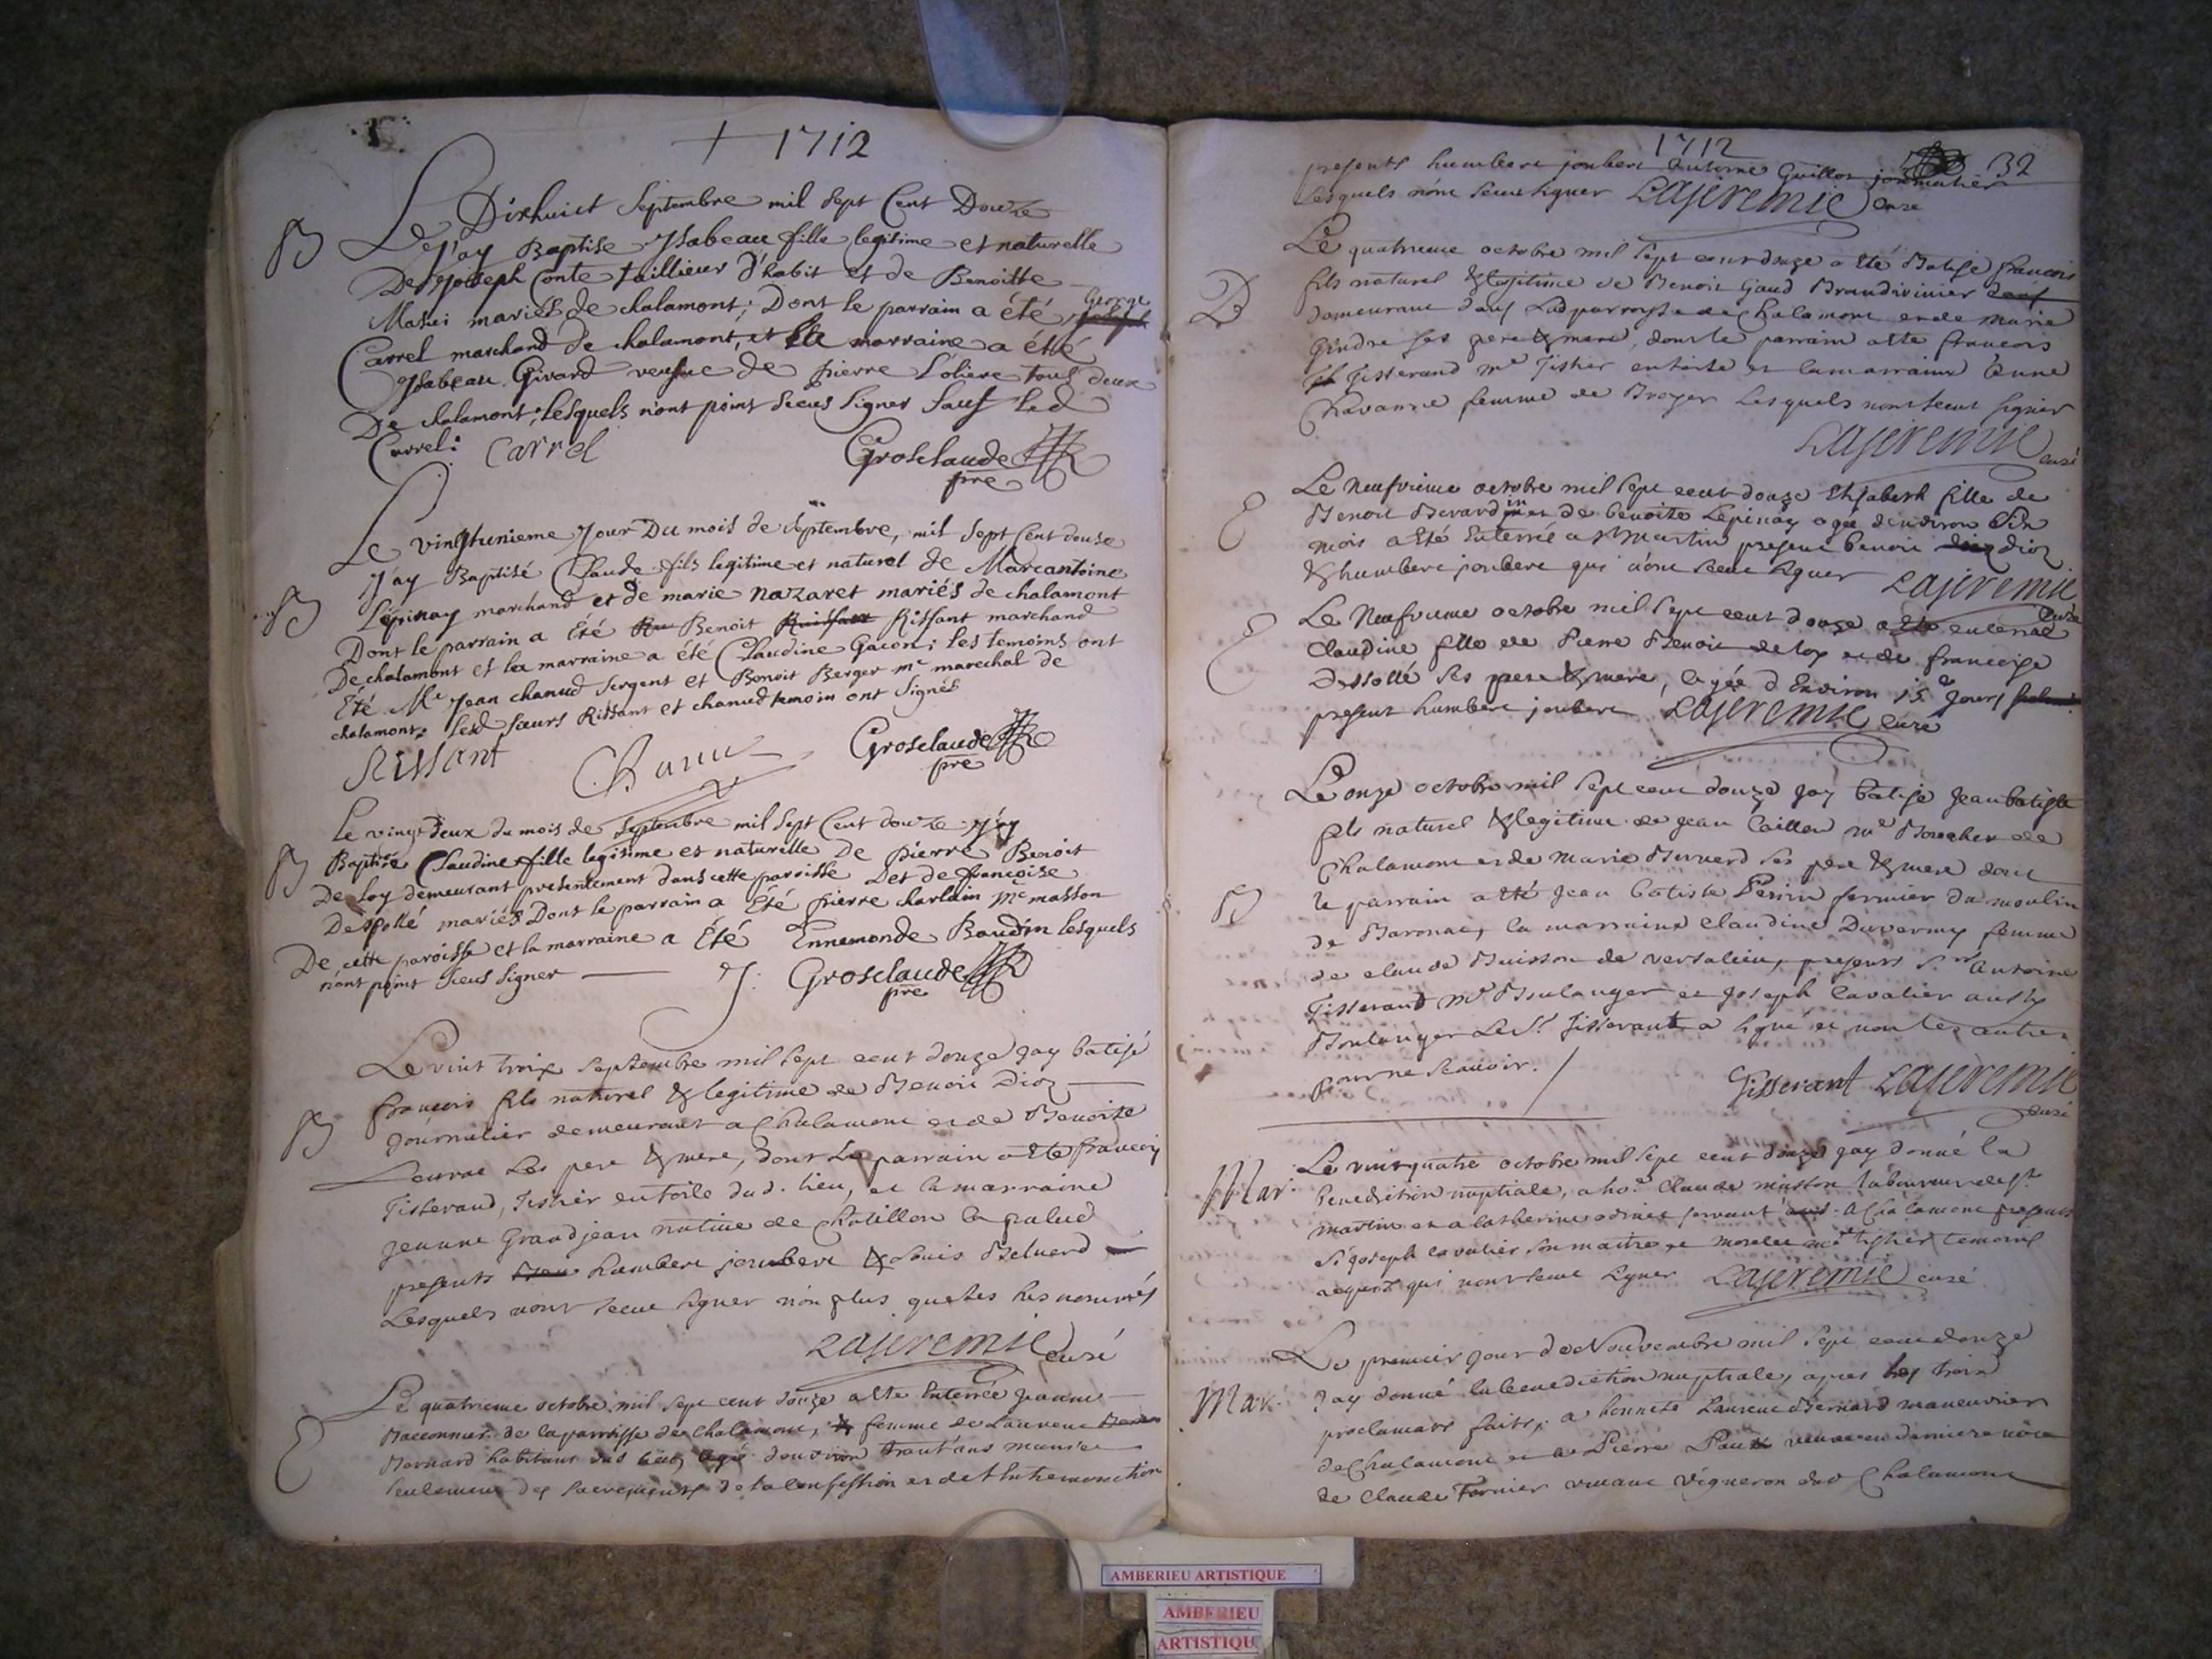 + 1712
B Le Dixhuict Septembre mil Sept Cent Douze
J'ay Baptise Ysabeau fille legitime et naturelle
De Joseph Conte taillieur d'habit et de Benoitte
mariés de chalamont; Dont le parrain a été George
Carrel marchand de chalamont, et la marraine a été
Ysabeau Girard veufue de pierre L'oliere tous deux
De chalamont; Lesquels n'ont point sceus signer sauf led
Carrel: Carrel Grosclaude
pre
Le vingtunieme Jour Du mois de Septembre, mil Sept Cent douse
B J'ay Baptisé Claude fils legitime et naturel de Marcantoine
Lépinay marchand et de marie nazaret mariés de chalamont
Dont le parrain a Eté Benoit Rissant marchand
De chalamont et la marraine a été Claudine Gacon; les temoins ont
Eté Me Jean chanud sergent et Benoit Berger mc marechal de
chalamont: Lesd sieurs Rissant et chanud temoin ont signés
Rissant Chanu Grosclaude
pre
Le vingt deux du mois de Septembre mil Sept Cent douze J'ay
B Baptisé Claudine fille legitime et naturelle De pierre Benoit
De Loy demeurant presentement dans cette paroisse Et de francoise
Despollé mariés Dont le parrain a Eté pierre charlain mc masson
De cette paroisse et la marraine a Eté Ennemonde Baudin lesquels
nont point sceus signer J. Grosclaude
pre
Le vint trois septembre mil sept cent douze jay batisé
francois fils naturel & legitime de Benoit Dioz
B journalier demeurant a Chalamont et de Benoite
ses pere & mere, dont le parrain a eté francois
Tisserand, Tissier en toile dud. lieu, et la marraine
jeanne Grandjean native de Chatillon la palud
presents humbert joubert & Louis
Lesquels nont sceu signer non plus que les sus nommés
Lajeremie curé
Le quatrieme octobre mil sept cent douze a eté Enterrée jeanne
de la parroisse de Chalamont, femme de Laurent
E Bernard habitans dud lieu, agé denviron trant'ans munie
seulement des sacrements de la confession et de l'Extremonction
1712
32
presents humbert joubert Antoine Guillot journalier
Lesquels nont sceu signer Lajeremie curé
Le quatrieme octobre mil sept cent douze a eté Batisé francois
fils naturel & legitime de Benoit Gaud Brandivinier
B demeurant dans Lad parroisse de Chalamont et de marie
Gindre ses pere & mere, dont le parrain a eté francois
Tisserand me Tissier en toile et la marraine Anne
Chavanne femme de Broyer Lesquels nont sceut signer
Lajeremie curé
Le neufvieme octobre mil sept cent douze Elisabeth fille de
E Benoit Berardin et de benoite Lepinay agée denviron six
mois a eté Enterrée a St martin present benoit dioz
& humbert joubert qui n'ont sceut signer Lajeremie
curé
E Le Neufvieme octobre mil sept cent douze a eté enterrée
Claudine fille de Pierre Benoit deloy et de francoise
Despollé ses pere & mere, agée d'Environ 15 jours
present humbert joubert Lajeremie curé
Le onze octobre mil sept cent douze jay batisé jean batiste
fils naturel & legitime de jean Caillon me Boucher de
Chalamont et de marie Bernard ses père & mere dont
B le parrain a eté jean batiste Perrin fermier du moulin
de Baronat, la marraine Claudine Duverny femme
de claude Buisson de versalieu, presents Sr Antoine
Tisserand me Boulanger et joseph Cavalier aussy
Boulanger Le Sr Tisserant a signé et non les autres
pour ne scavoir. /
Tisserant Lajeremie
curé
Mar. Le vint quatre octobre mil sept cent douze jay donné la
benediction nuptiale, a ho.e Claude muston laboureur de St
martin et a Catherine servant a Chalamont presents
Sr joseph Cavalier son maitre et me tissier temoins
requis qui nont sceut signer Lajeremie curé
Le premier jour de Nouvembre mil sept cent douze
Mar. Jay donné la benediction nuptiale, apres les trois
proclamats faits, a honnete Laurent Bernard maneuvrier
de Chalamont et a Pierre Paux veuve en derniere noce
de Claude Fornier vivant vigneron dud Chalamont
AMBERIEU ARTISTIQUE
AMBERIEU
ARTISTIQU